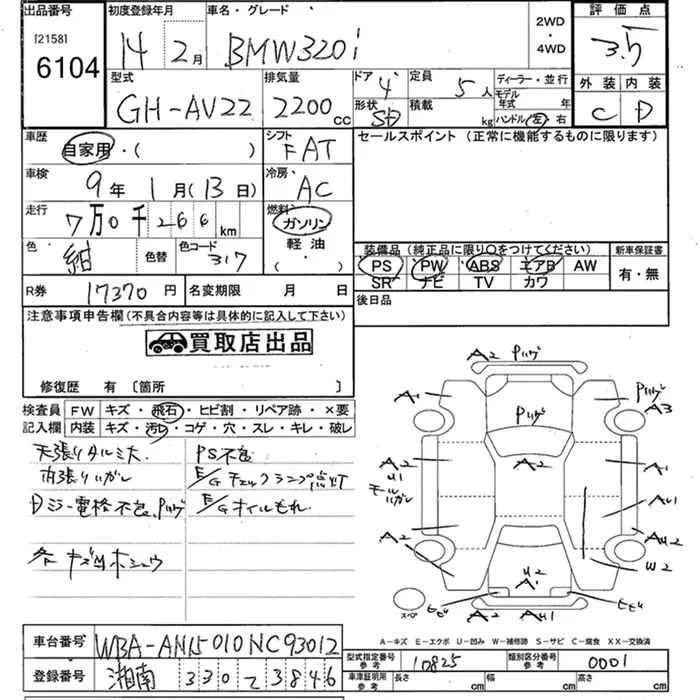 出品番号
[2158]
6104
初度登録年月
14年 2月
車名・グレード
BMW320i
2WD
・
4WD
評価点
3.5
外装 内装
C D
型式
GH-AV22
排気量
2200cc
ドア 4
形状 SD
定員 5人
積載 kg
ディーラー・並行
モデル年式 年
ハンドル 左 右
車歴
自家用・( )
シフト
FAT
セールスポイント (正常に機能するものに限ります)
車検
9年 1月(13日)
冷房
AC
走行
7万0千266km
燃料
ガソリン
軽油
( )
色
紺
色替
色コード
317
装備品 (純正品に限り○をつけてください)
PS PW ABS エアB AW
SR ナビ TV カワ
新車保証書
有・無
R券 17370円
名変期限 月 日
後日品
注意事項申告欄(不具合内容等は具体的に記入して下さい)
買取店出品
修復歴 有 〔箇所 〕
検査員記入欄
FW キズ・飛石・ヒビ割・リペア跡・×要
内装 キズ・汚レ・コゲ・穴・スレ・キレ・破レ
天張りタルミ大
内張りハガレ
Dミラー電格不良、Pハゲ
各キズ凹ホシュウ
PS不良
E/Gチェックランプ点灯
E/Gオイルもれ
A2 Pハゲ
A1 Pハゲ
A3
Pハゲ
A2 A2 A1
U1
モールハガレ
AU1
A2 AU2
W2
U2
A1
ヒビ ヒビ
スペ
A2 AU1
A-キズ E-エクボ U-凹み W-補修跡 S-サビ C-腐食 XX-交換済
車台番号
WBA-AN15010NC93012
登録番号
湘南 330 て 3846
型式指定番号
参考
10825
類別区分番号
参考
0001
車庫証明用
参考
長さ cm
幅 cm
高さ cm